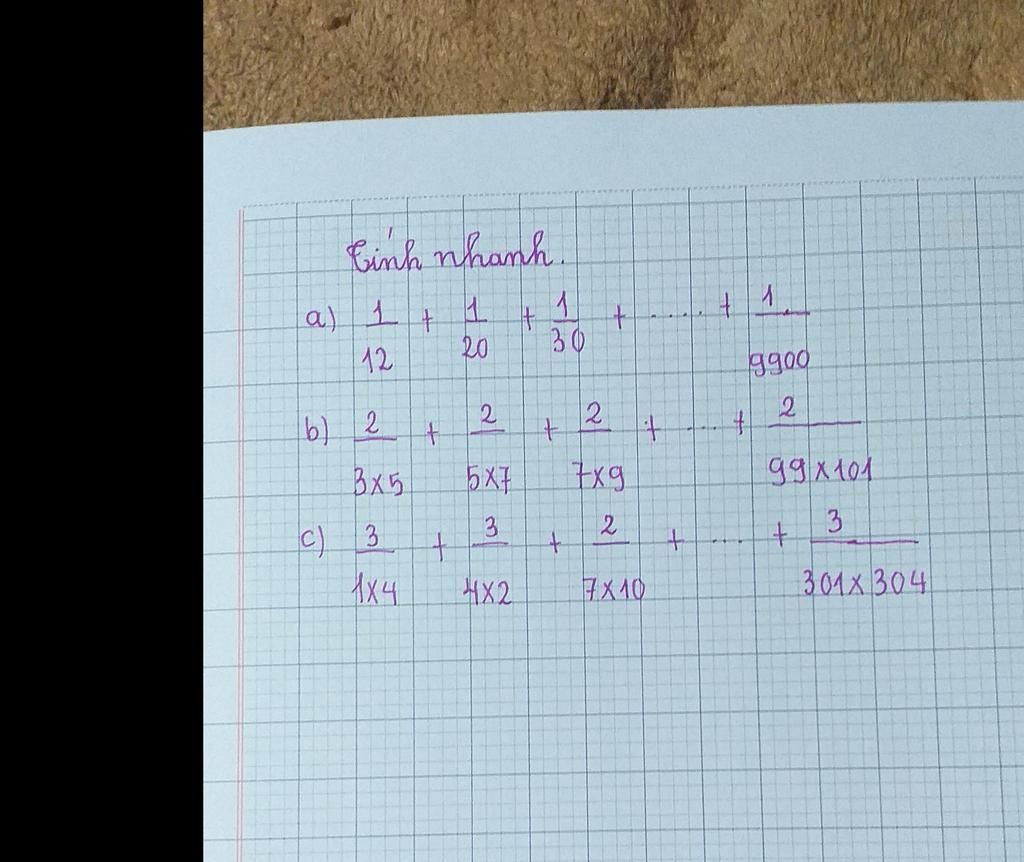 Tính nhanh.
a) 1/12 + 1/20 + 1/30 + ..... + 1/9900
b) 2/3x5 + 2/5x7 + 2/7x9 + ... + 2/99x101
c) 3/1x4 + 3/4x2 + 2/7x10 + ... + 3/301x304